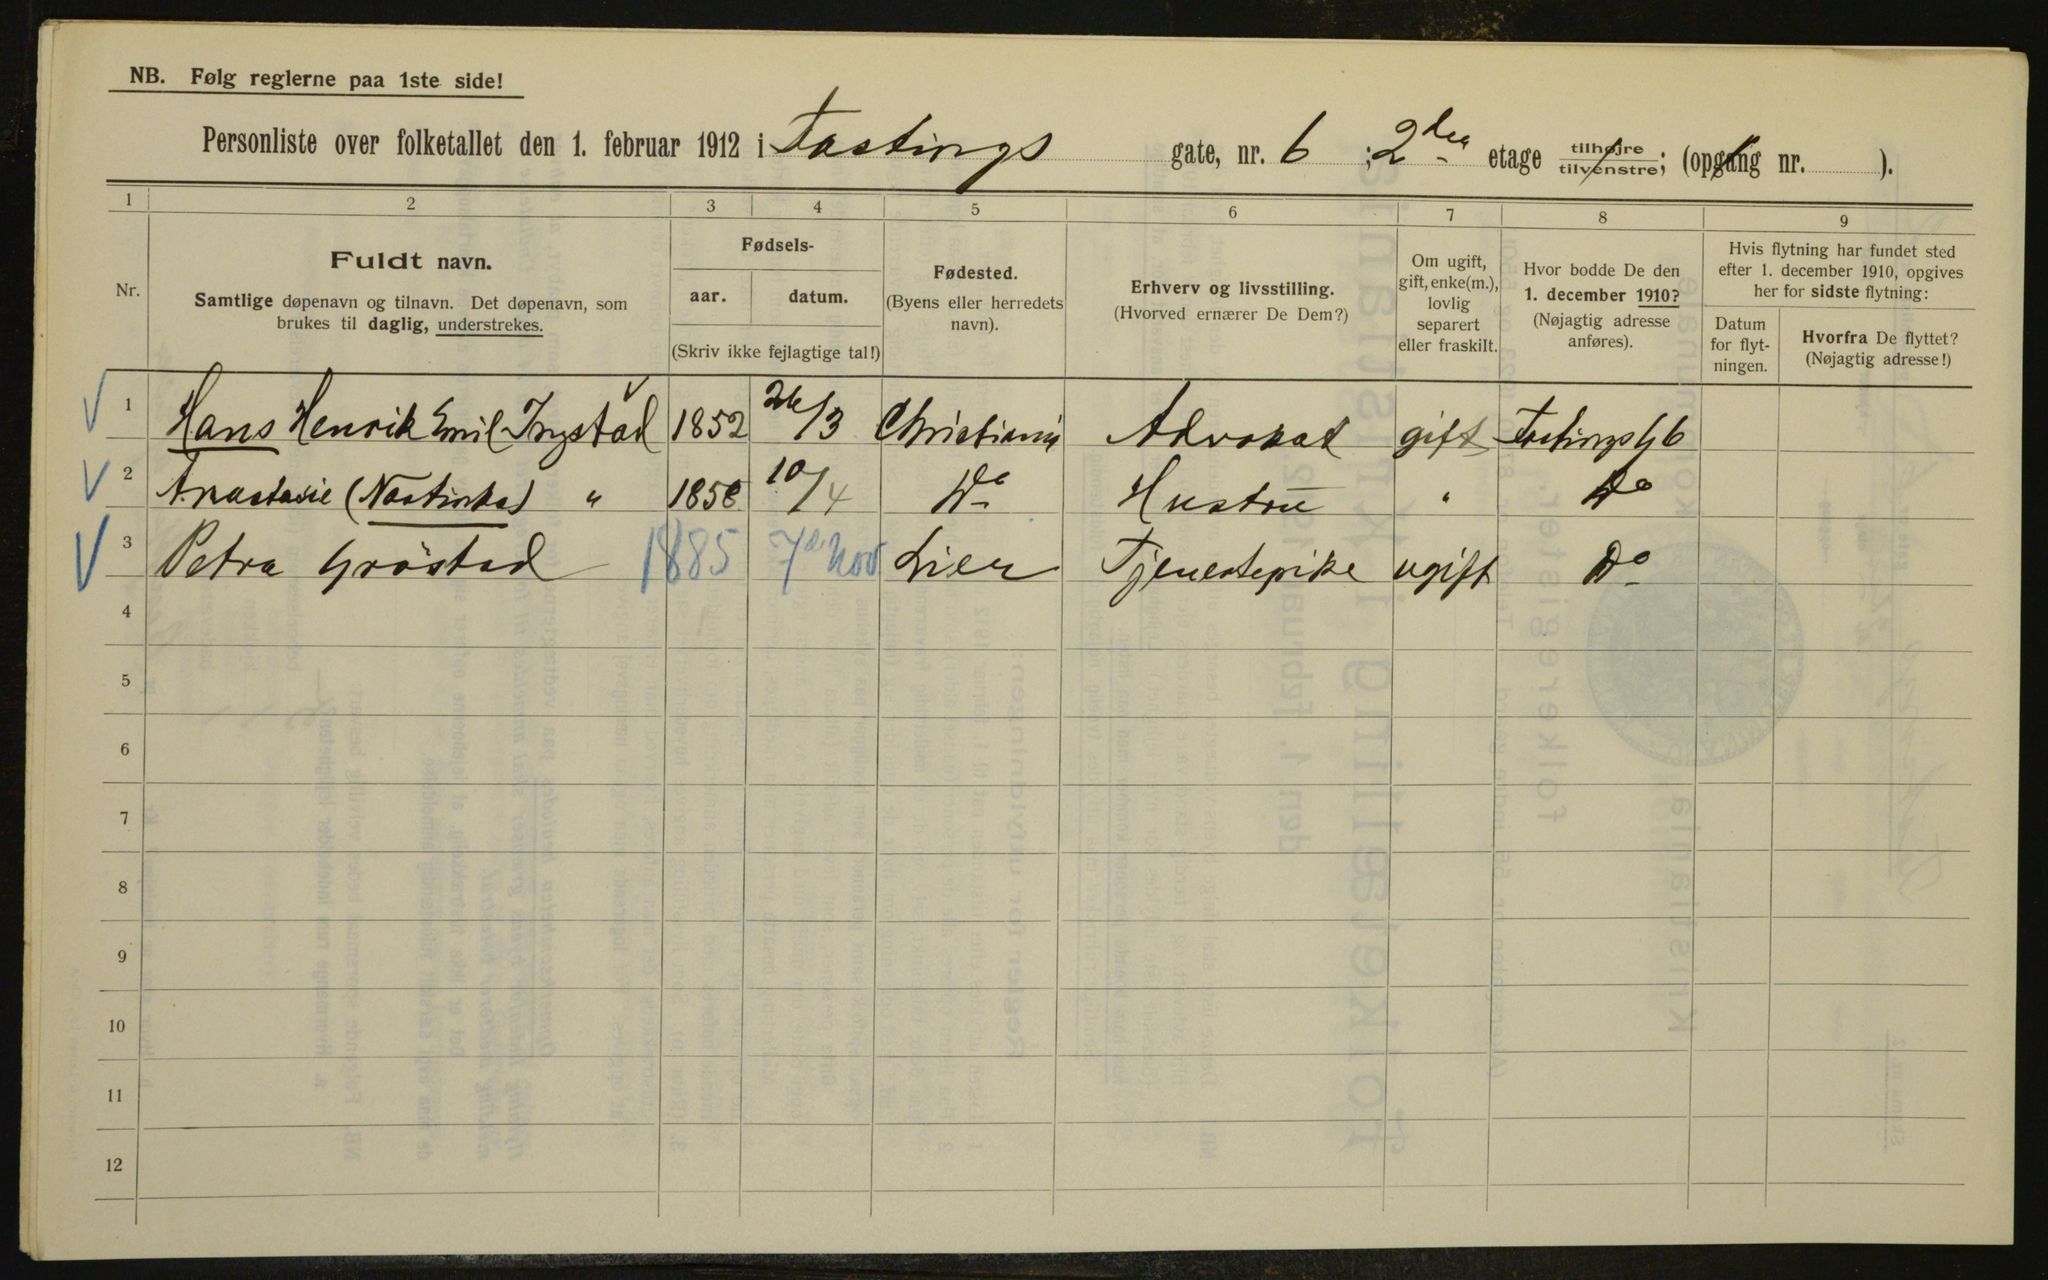 NB. Følg reglerne paa 1ste side!
Personliste over folketallet den 1. februar 1912 i Fastings gate, nr. 6 ; 2den etage tilhøjre tilvenstre; (opgang nr. ).
1 2 3 4 5 6 7 8 9
Nr.
Fuldt navn.
Samtlige døpenavn og tilnavn. Det døpenavn, som
brukes til daglig, understrekes.
Fødsels-
aar. datum.
(Skriv ikke fejlagtige tal!)
Fødested.
(Byens eller herredets
navn).
Erhverv og livsstilling.
(Hvorved ernærer De Dem?)
Om ugift,
gift, enke(m.),
lovlig
separert
eller fraskilt.
Hvor bodde De den
1. december 1910?
(Nøjagtig adresse
anføres).
Hvis flytning har fundet sted
efter 1. december 1910, opgives
her for sidste flytning:
Datum
for flyt-
ningen.
Hvorfra De flyttet?
(Nøjagtig adresse!)
1 Hans Henrik Emil Ingstad 1852 26/3 Christiania Advokat gift Fastingsg 6
2 Anastasie (Nastinka) " 1858 10/4 Do Hustru " Do
3 Petra Gröstad 1885 7de Nov Lier Tjenestepike ugift Do
4
5
6
7
8
9
10
11
12